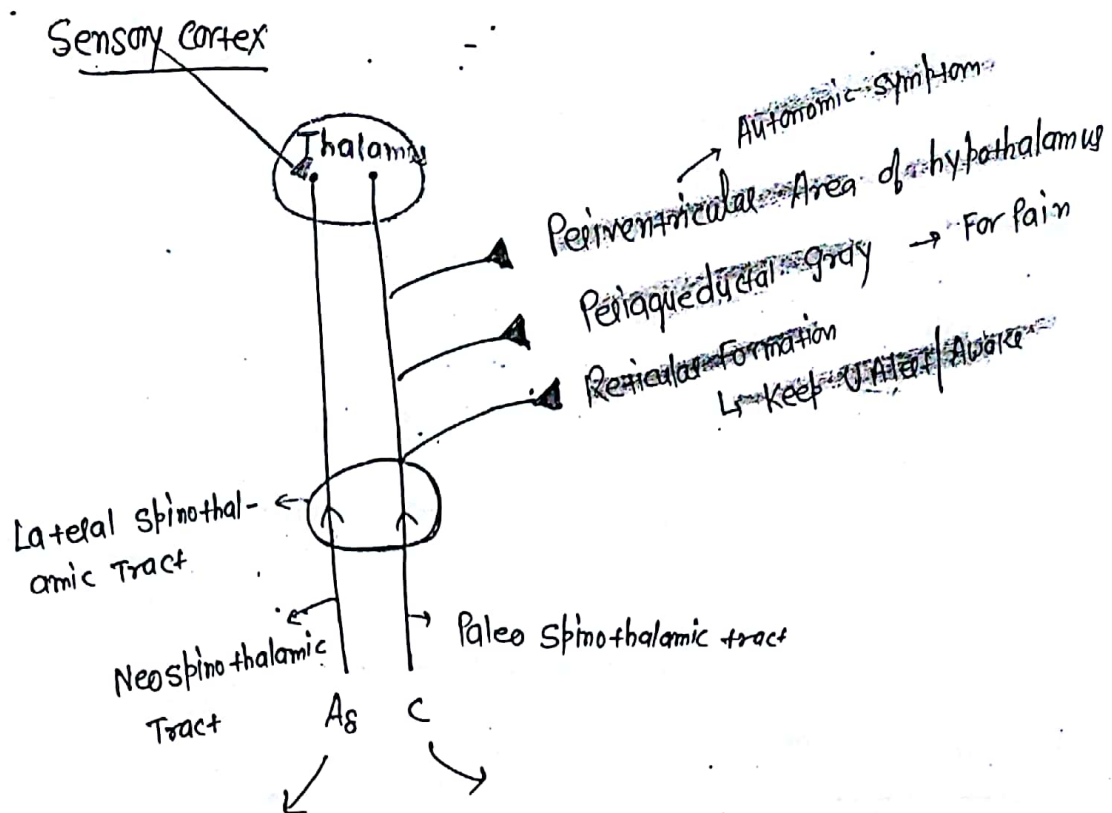 Sensory Cortex
Thalamus
Autonomic symptom
Periventricular Area of hypothalamus
Periaqueductal gray → For Pain
Reticular Formation
↳ Keep U Alert/Awake
Lateral Spinothal-
amic Tract
Neospinothalamic
Tract
Paleo Spinothalamic tract
Aδ
C